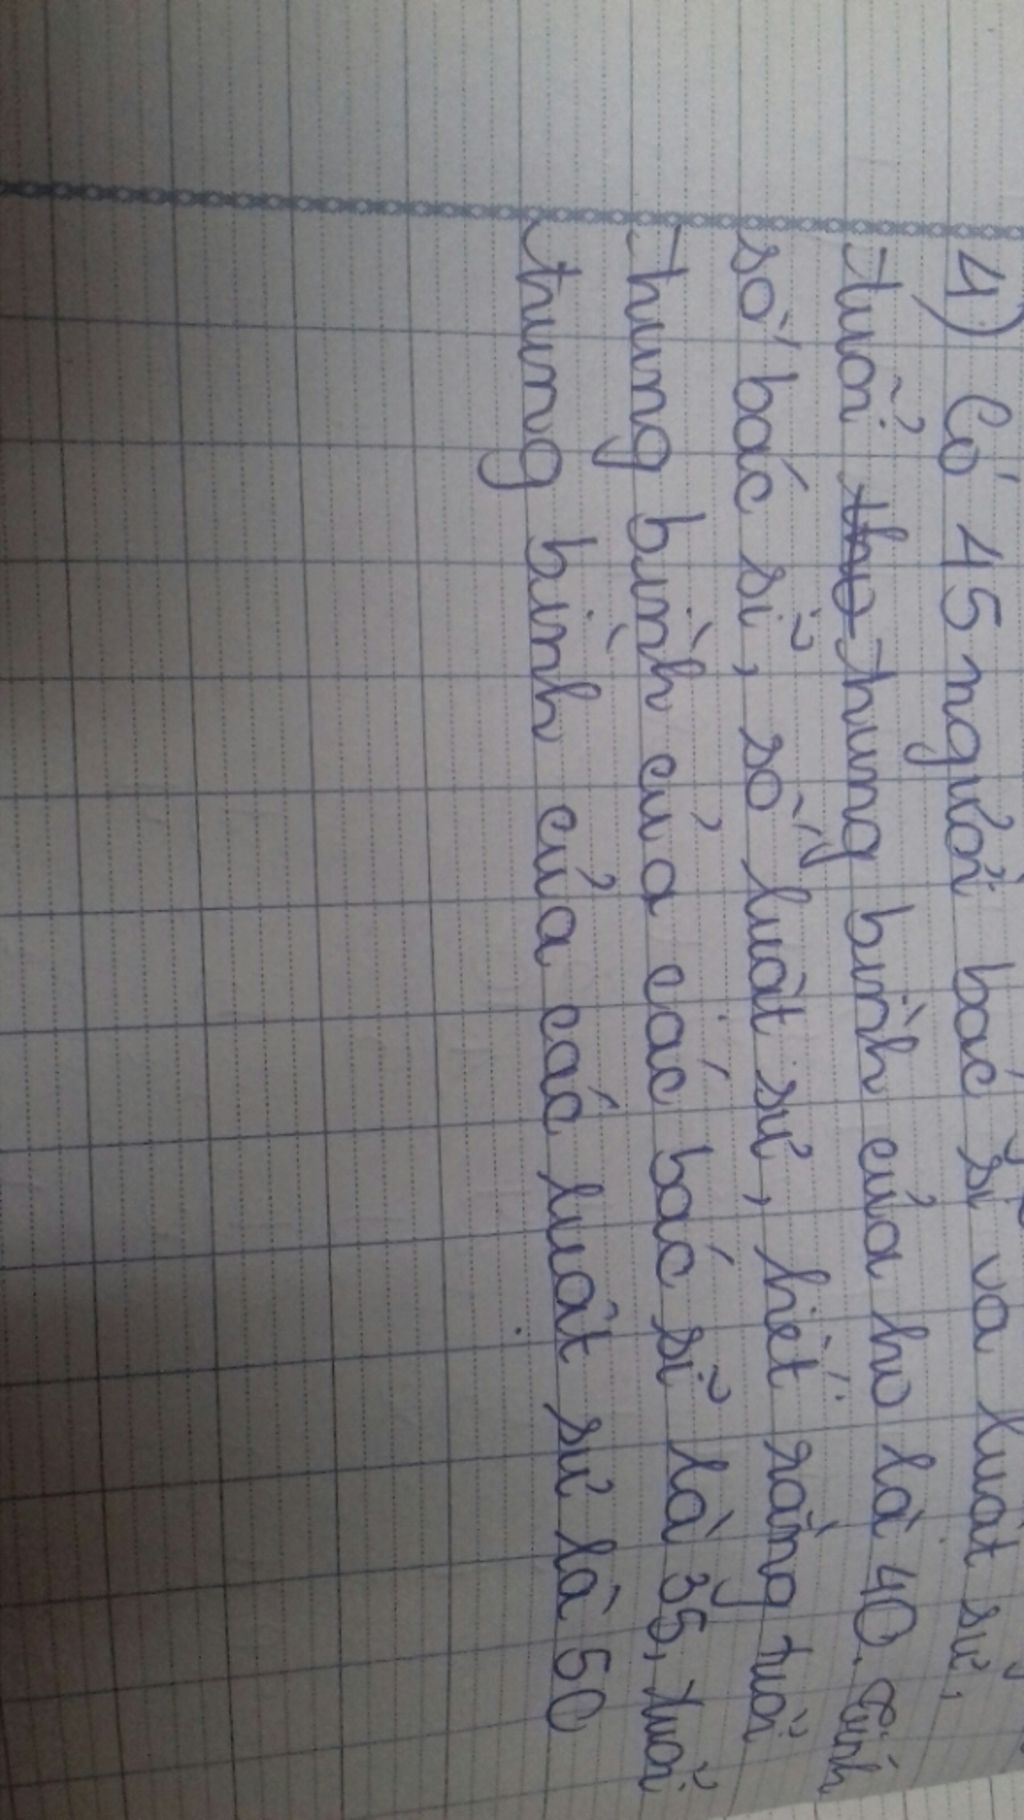 4) Có 45 người bác sĩ và luật sư,
tuổi trung bình của họ là 40. Tính
số bác sĩ, số luật sư, biết rằng tuổi
trung bình của các bác sĩ là 35, tuổi
trung bình của các luật sư là 50